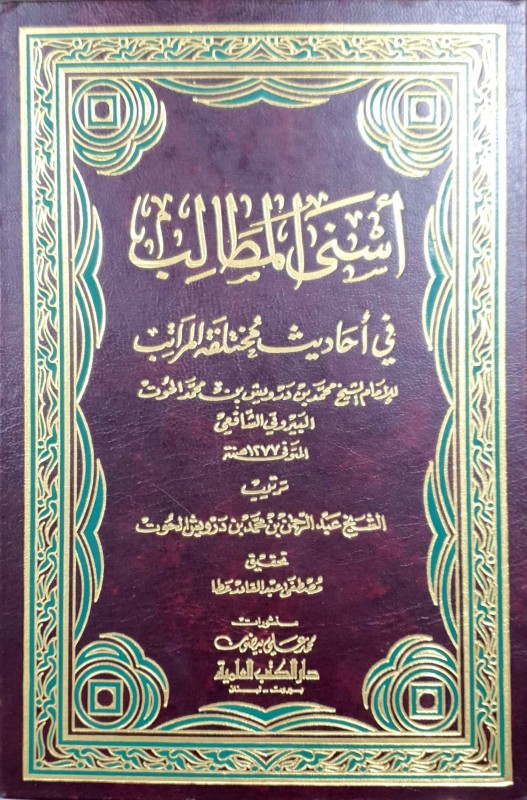 أسنى المطالب
في أحاديث مختلفة المراتب
للإمام الشيخ محمد بن درويش بن محمد الحوت
البيروتي الشافعي
المتوفى ١٢٧٧ سنة
ترتيب
الشيخ عبد الرحمن بن محمد بن درويش الحوت
تحقيق
مصطفى عبد القادر عطا
منشورات
محمد علي بيضون
دار الكتب العلمية
بيروت - لبنان